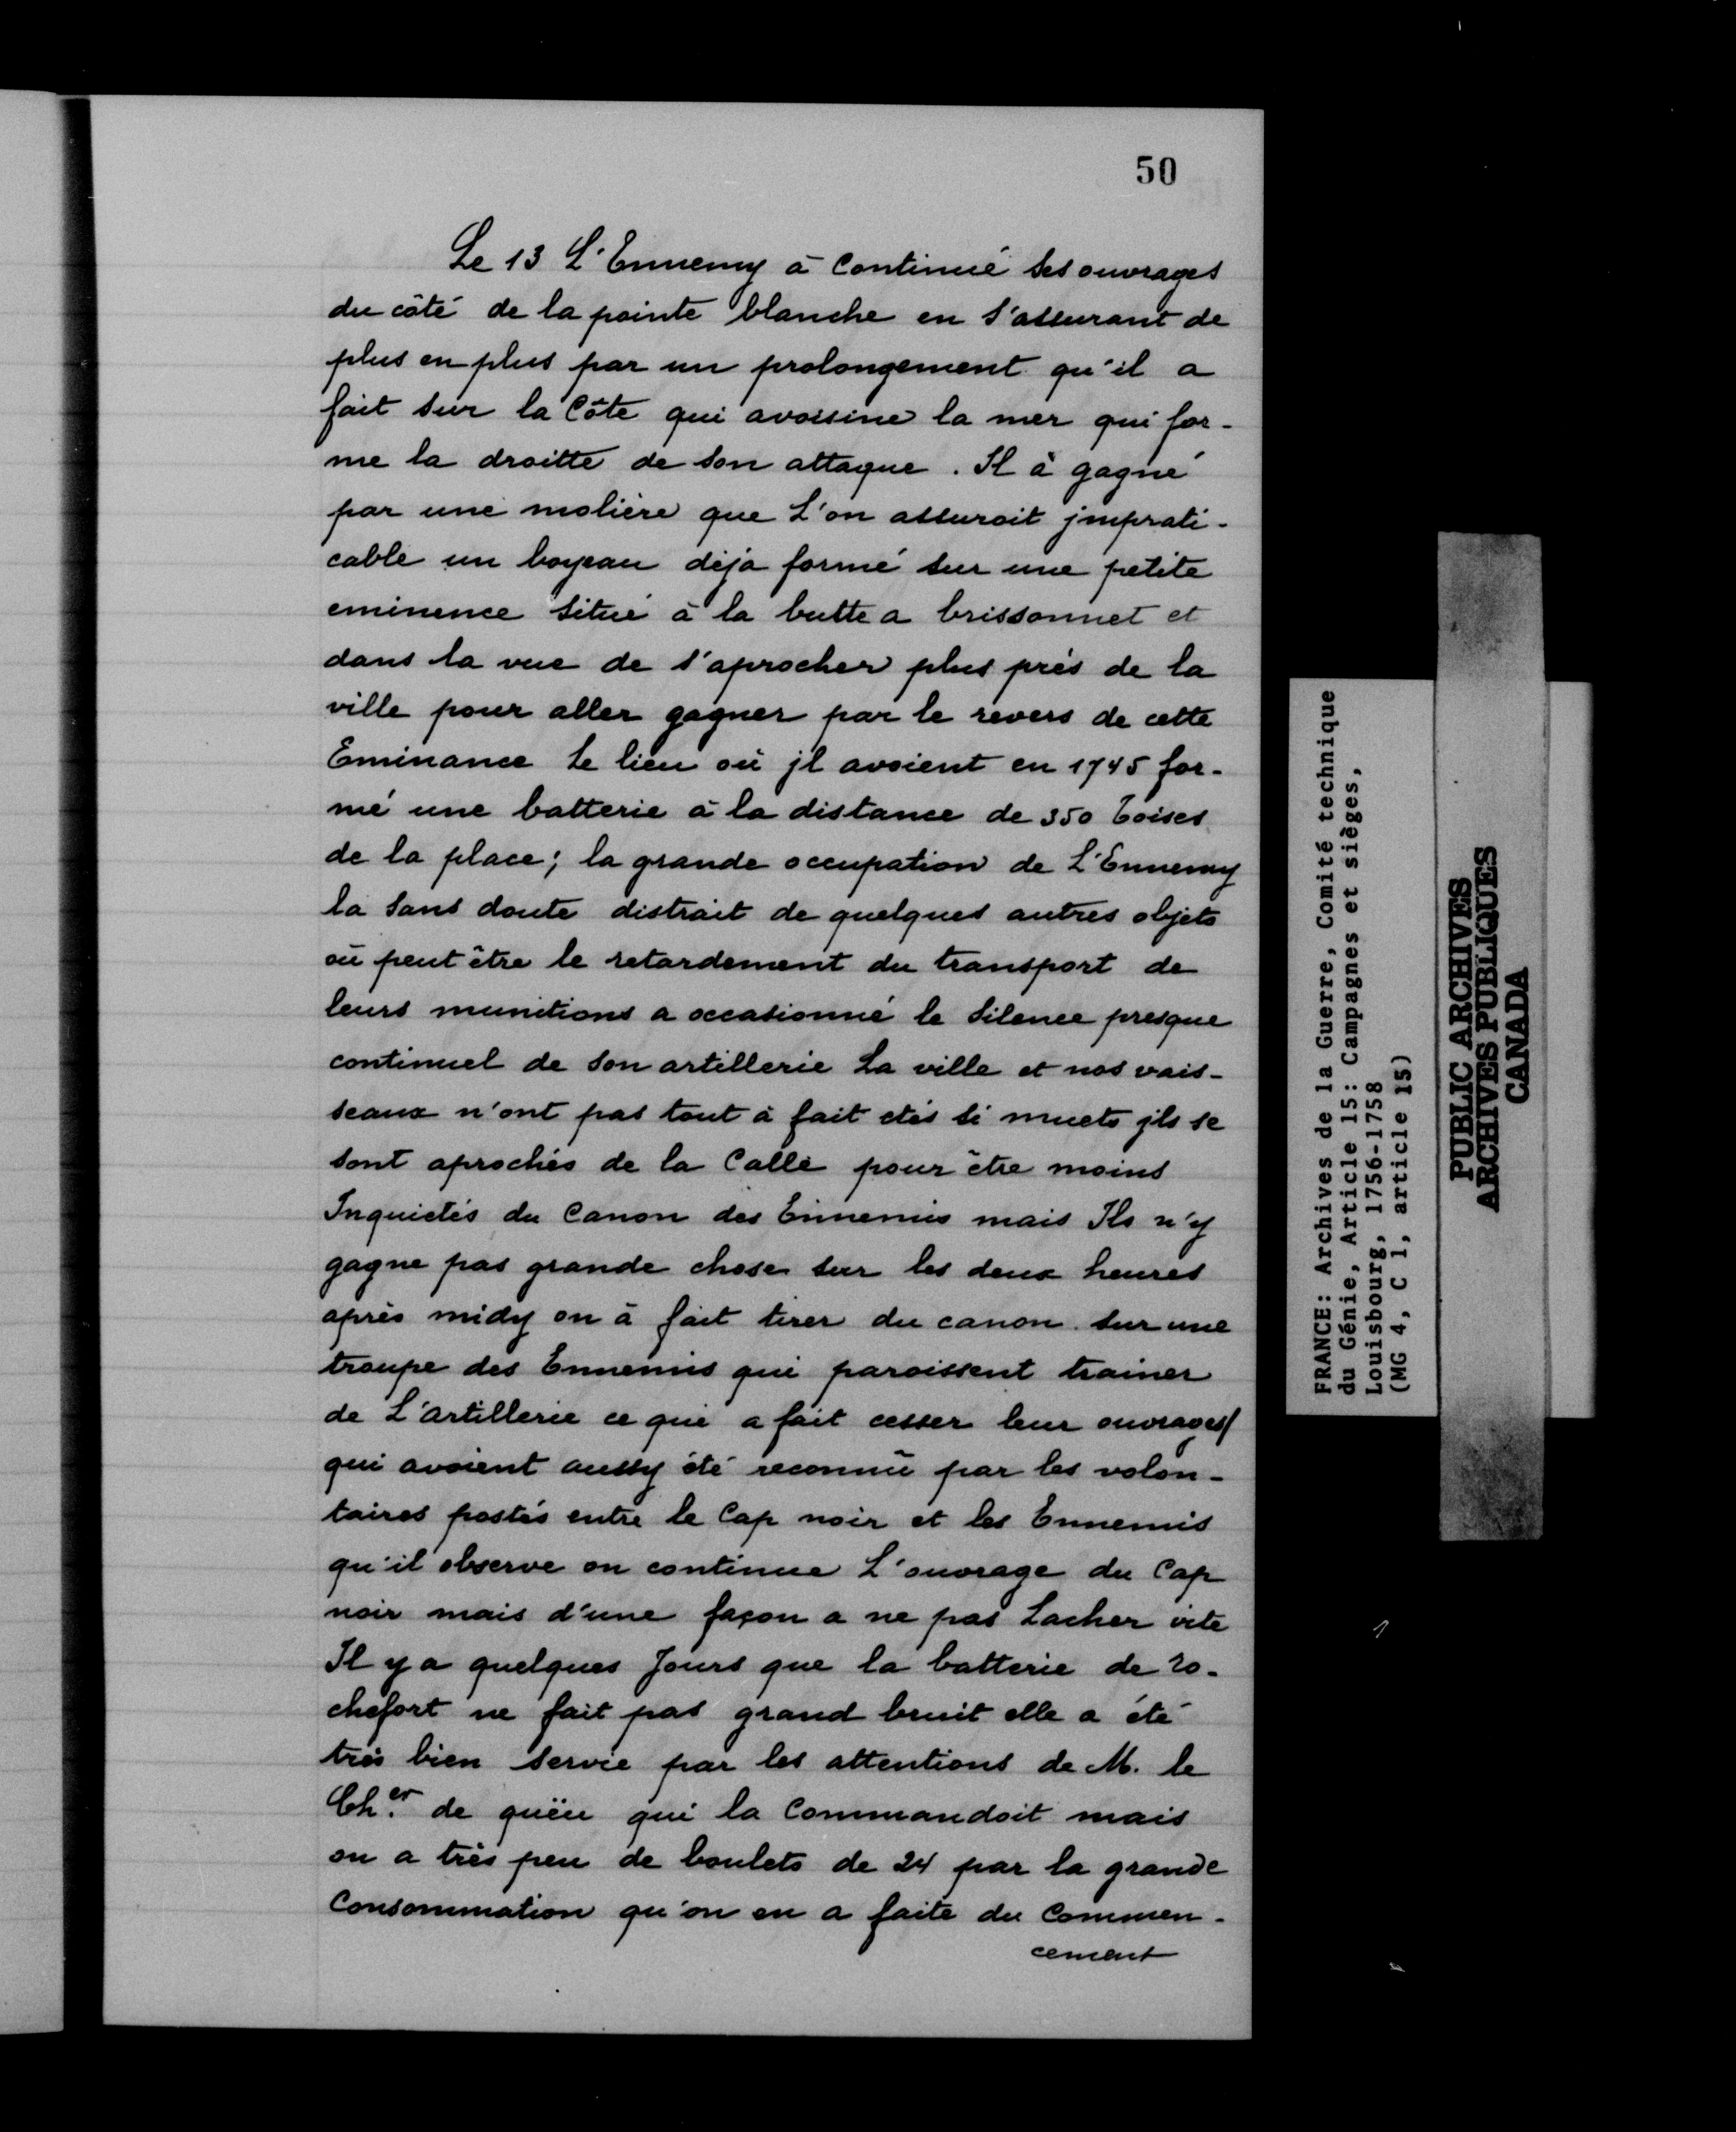 50
Le 13 L'Ennemy à Continué ses ouvrages
du côté de la pointe blanche en s'assurant de
plus en plus par un prolongement qu'il a
fait sur la Côte qui avoisine la mer qui for-
me la droitte de son attaque. Il à gagné
par une molière que L'on assuroit jmprati-
cable un boyeau déja formé sur une petite
eminence situé à la butte a brissonnet et
dans la vue de s'aprocher plus près de la
ville pour aller gagner par le revers de cette
Eminance Le lieu où jl avoient en 1745 for-
mé une batterie à la distance de 350 toises
de la place; la grande occupation de L'Ennemy
la sans doute distrait de quelques autres objets
où peut être le retardement du transport de
leurs munitions a occasionné le silence presque
continuel de son artillerie La ville et nos vais-
seaux n'ont pas tout à fait etés si muets jls se
sont aprochés de la Calle pour être moins
Inquietés du Canon des Ennemis mais Ils n'y
gagne pas grande chose sur les deux heures
après midy on à fait tirer du canon sur une
troupe des Ennemis qui paroissent trainer
de L'artillerie ce qui a fait cesser leur ouvrages
qui avoient aussy été reconnû par les volon-
taires postés entre le Cap noir et les Ennemis
qu'il observe on continue L'ouvrage du Cap
noir mais d'une façon a ne pas Lacher vite
Il y a quelques Jours que la batterie de ro-
chefort ne fait pas grand bruit elle a été
très bien servie par les attentions de M. le
Ch.er de quëu qui la Commandoit mais
on a très peu de boulets de 24 par la grande
Consommation qu'on en a faite du Commen-
cement
FRANCE: Archives de la Guerre, Comité technique
du Génie, Article 15: Campagnes et sièges,
Louisbourg, 1756-1758
(MG 4, C 1, article 15)
PUBLIC ARCHIVES
ARCHIVES PUBLIQUES
CANADA